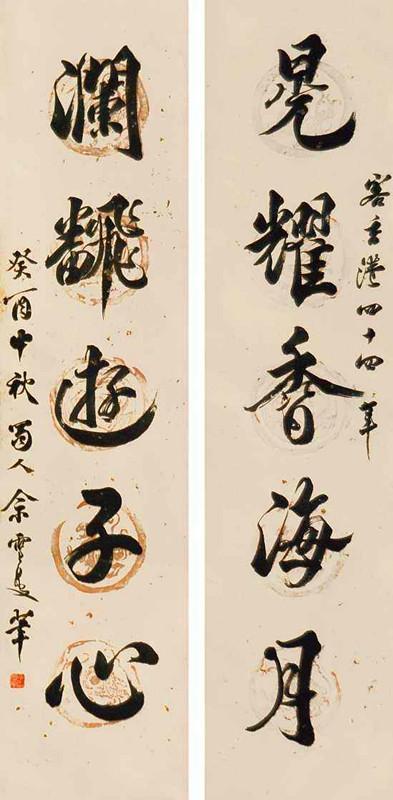 晃耀香海月
客香港四十四年
瀾飜遊子心
癸酉中秋蜀人佘雪曼筆